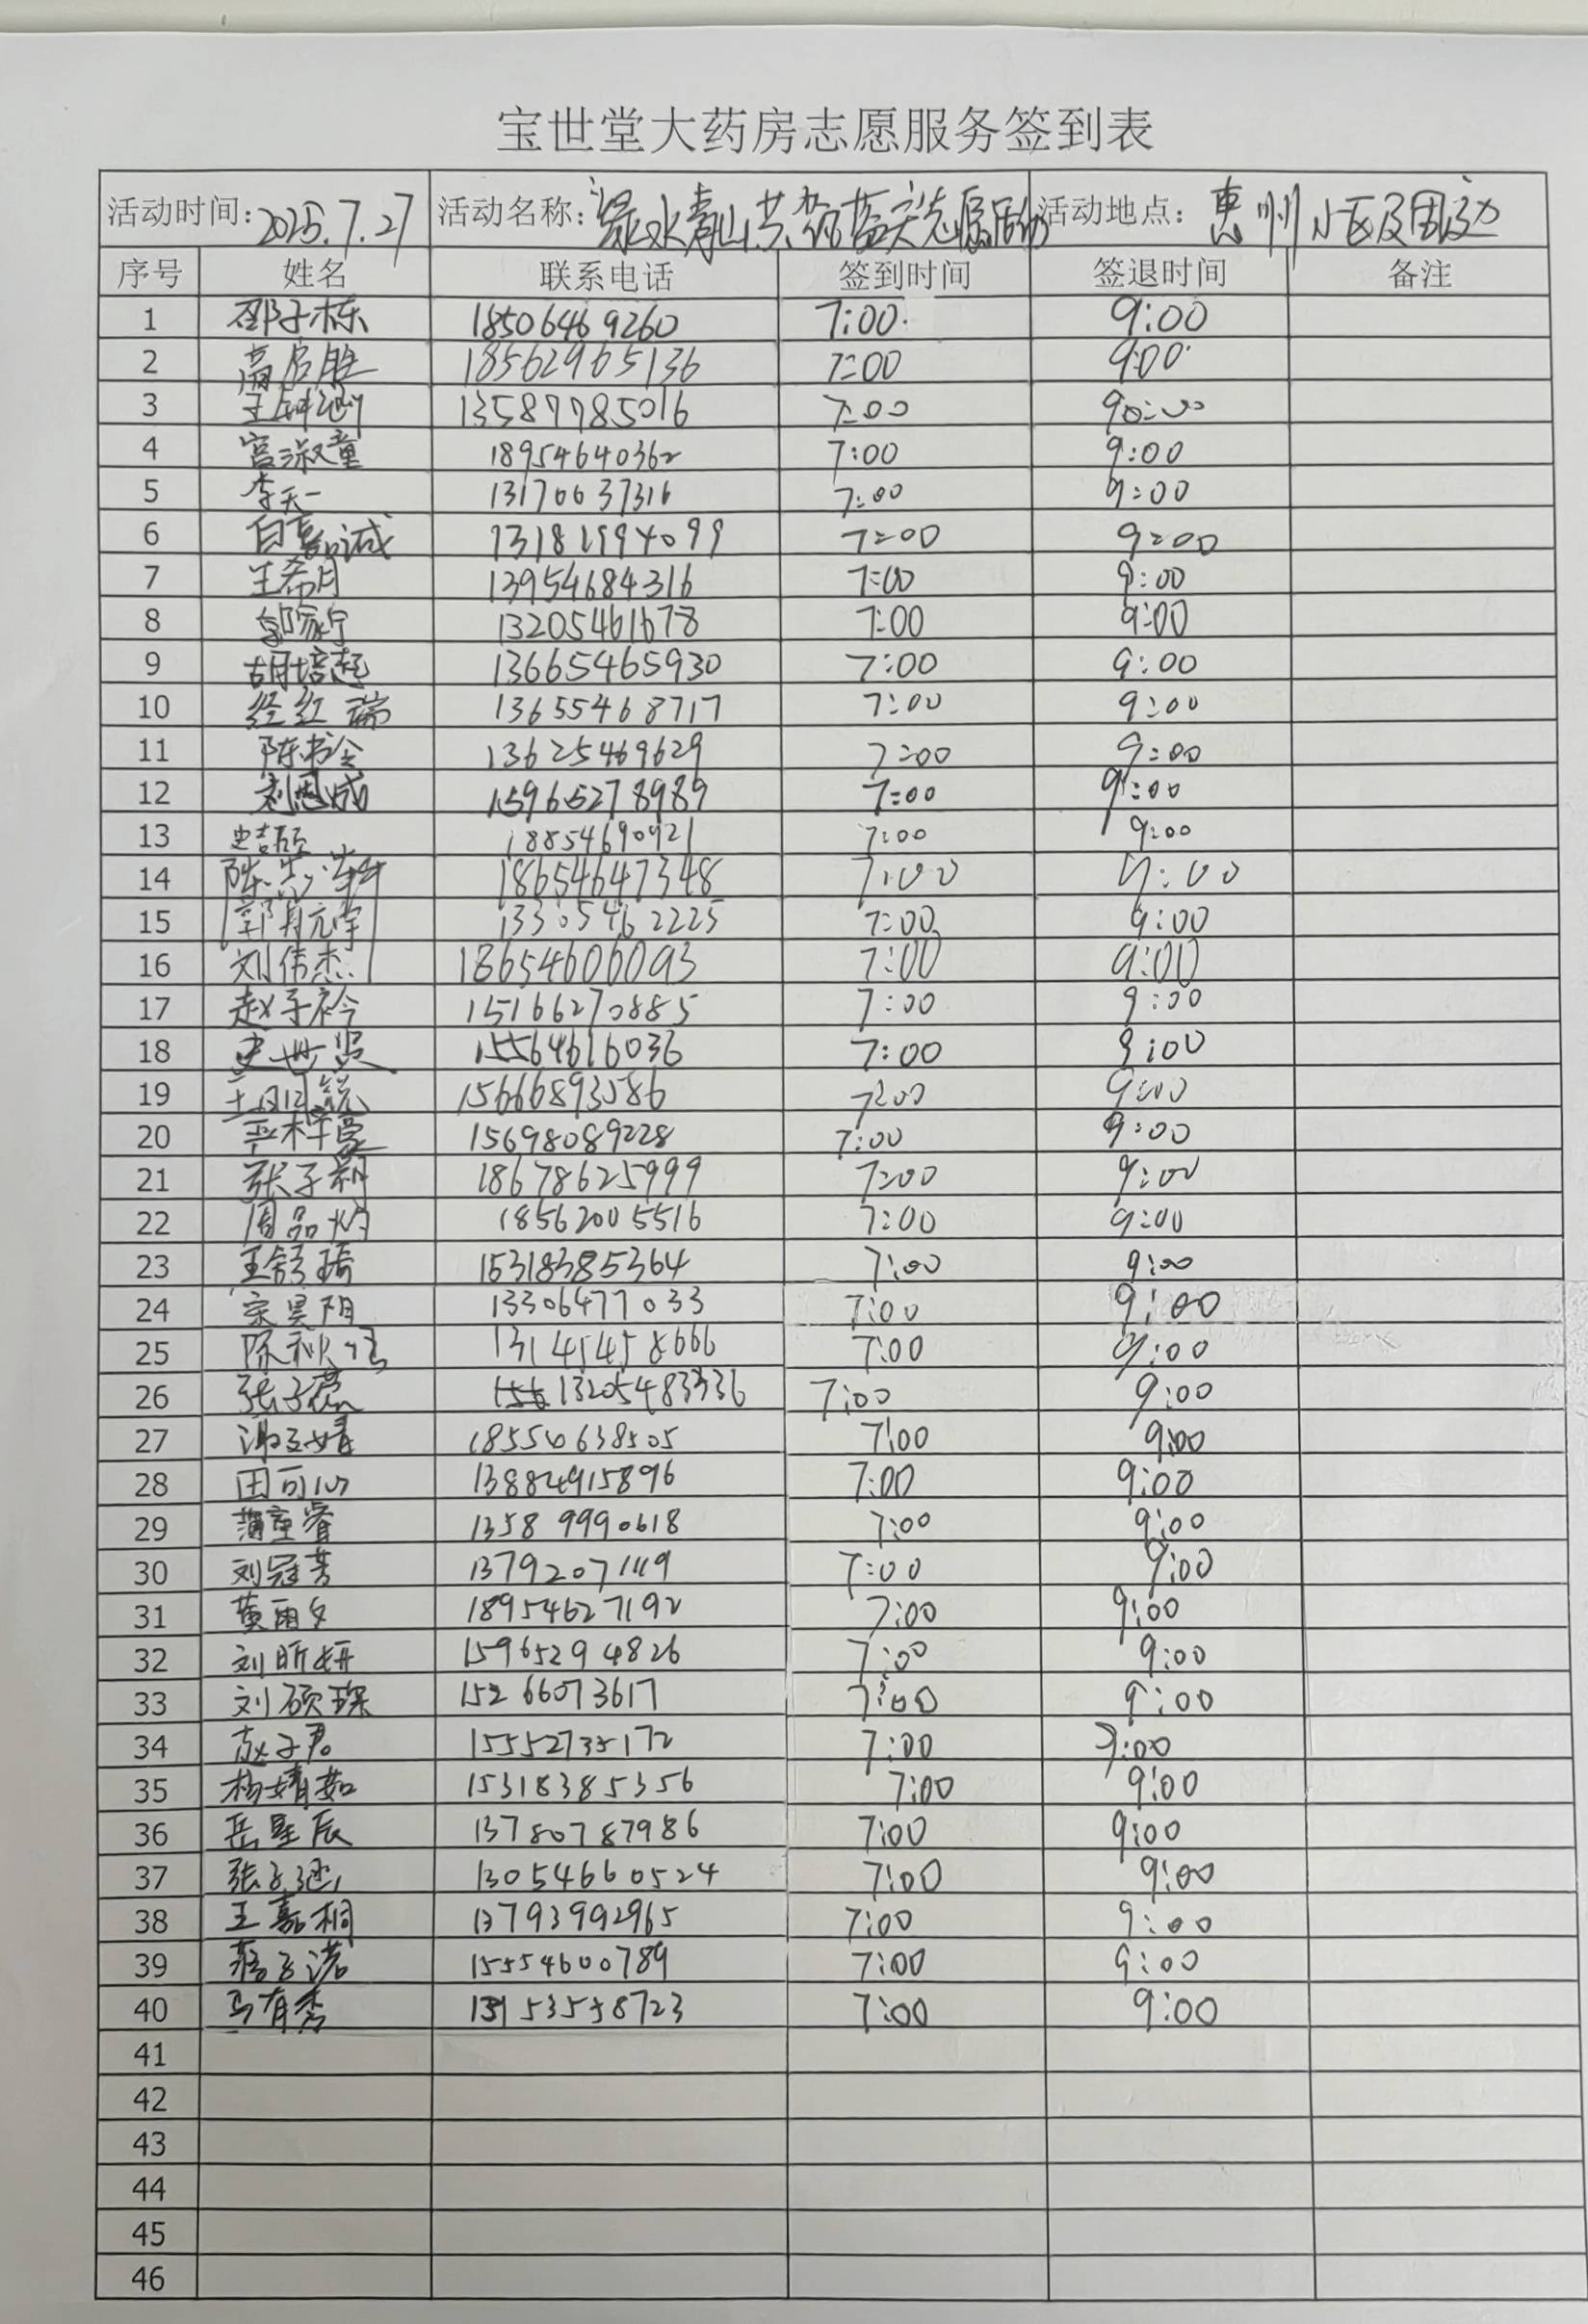 宝世堂大药房志愿服务签到表
活动时间:2025.7.27 活动名称:绿水青山共 蓝天志愿活动 活动地点:惠州小区及周边
序号 姓名 联系电话 签到时间 签退时间 备注
1 邵子栋 18506469260 7:00 9:00
2 高启胜 18562965136 7:00 9:00
3 王钟涵 13589785016 7:00
4 宫淑童 18954640362 7:00 9:00
5 李天一 13170037316 7:00 9:00
6 13181994099 7:00 9:00
7 王希月 13954684316 7:00 9:00
8 郭家宁 13205461678 7:00 9:00
9 胡培起 13665465930 7:00 9:00
10 经红瑞 13655468717 7:00 9:00
11 陈书会 13625469629 7:00 9:00
12 刘恩成 15965278989 7:00 9:00
13 史喆硕 18854690921 7:00 9:00
14 18654647348 7:00 9:00
15 13305462225 7:00 9:00
16 刘伟杰 18654606093 7:00 9:00
17 赵子衿 15166270885 7:00 9:00
18 史世贤 15564616036 7:00 9:00
19 15666893586 7:00 9:00
20 15698089228 7:00 9:00
21 张子朔 18678625999 7:00 9:00
22 周品灼 18562005516 7:00 9:00
23 王舒琦 15318385364 7:00 9:00
24 宗昊阳 13306477033 7:00 9:00
25 13145458666 7:00 9:00
26 7:00 9:00
27 18550638505 7:00 9:00
28 田可心 13884915896 7:00 9:00
29 蒲童睿 13589990618 7:00 9:00
30 刘冠芳 13792071119 7:00 9:00
31 黄雨夕 18954627192 7:00 9:00
32 刘昕妍 15965294826 7:00 9:00
33 刘硕琛 15266073617 7:00 9:00
34 赵子君 15552735172 7:00 9:00
35 杨婧茹 15318385356 7:00 9:00
36 岳星辰 13780787986 7:00 9:00
37 张子涵 13054660524 7:00 9:00
38 王嘉桐 13793992965 7:00 9:00
39 蒋子诺 15554600789 7:00 9:00
40 马有秀 7:00 9:00
41
42
43
44
45
46